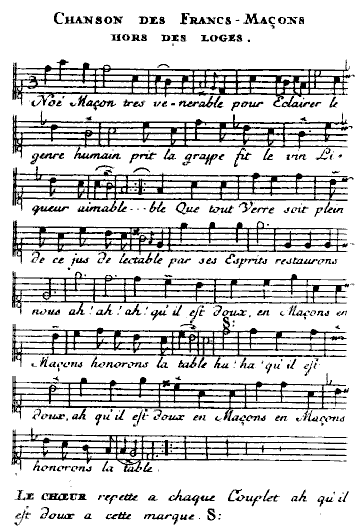 CHANSON DES FRANCS-MAÇONS
HORS DES LOGES.
Noé Maçon tres ve-nerable pour Eclairer le
genre humain prit la grappe fit le vin Li-
queur aimable---ble Que tout Verre soit plein
de ce jus de lectable par ses Esprits restaurons
nous ah! ah! ah! qu'il est doux, en Maçons en
Maçons honorons la table hu! ha! qu'il est
doux, ah qu'il est doux en Maçons en Maçons
honorons la table.
LE CHŒUR repette a chaque Couplet ah qu'il
est doux a cette marque S: